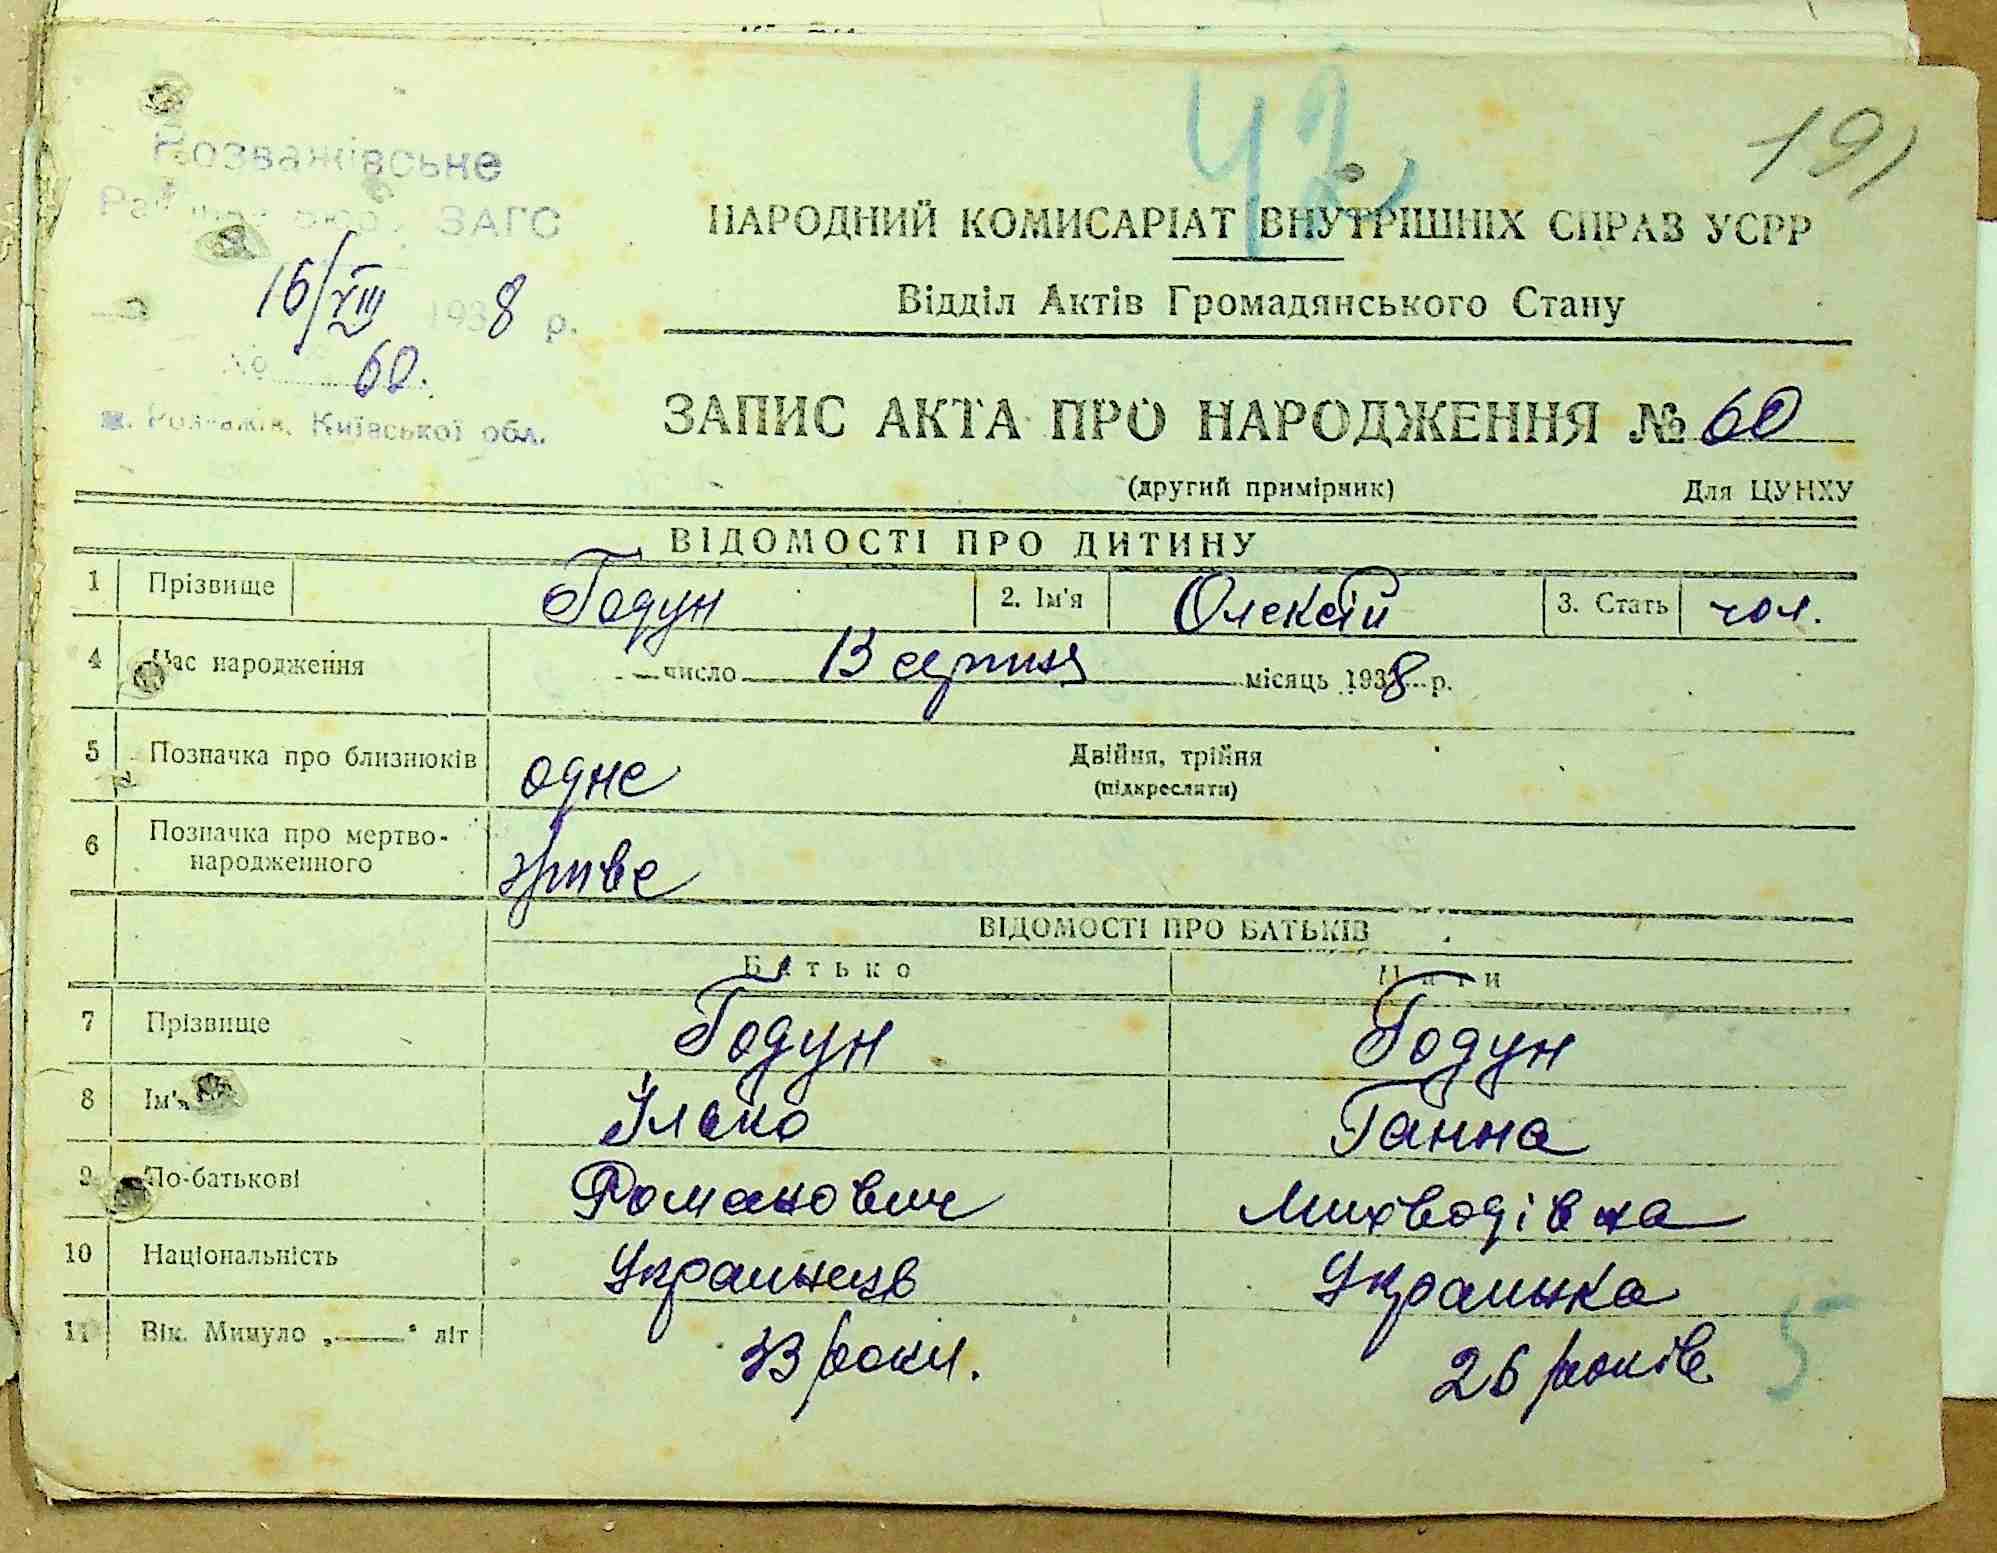 42
191
Розважівське
ЗАГС
16/VIII 1938 р.
№ 60.
м. Розважів, Київської обл.
НАРОДНИЙ КОМИСАРІАТ ВНУТРІШНІХ СПРАВ УСРР
Відділ Актів Громадянського Стану
ЗАПИС АКТА ПРО НАРОДЖЕННЯ № 60
(другий примірник) Для ЦУНХУ
ВІДОМОСТІ ПРО ДИТИНУ
1 Прізвище Годун 2. Ім'я Олексій 3. Стать чол.
4 Час народження число 13 серпня місяць 1938 р.
5 Позначка про близнюків одне Двійня, трійня
(підкреслити)
6 Позначка про мертво-
народженного живе
ВІДОМОСТІ ПРО БАТЬКІВ
Батько Мати
7 Прізвище Годун Годун
8 Ім'я Ілько Ганна
9 По-батькові Романович
10 Національність Украинець Украинка
11 Вік. Минуло „——“ літ 33 роки. 26 років.
5